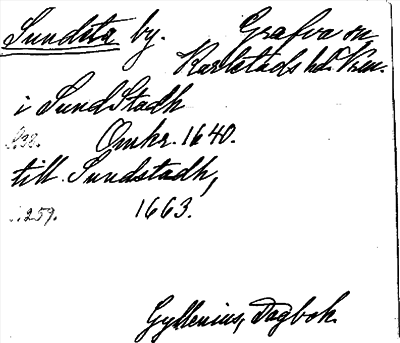 Sundsta by. Grafva sn
Karlstads hd. Vrm.
i SundStadh
s. 38. Omkr. 1640.
till Sundstadh,
s. 259. 1663.
Gyllenius, Dagbok.